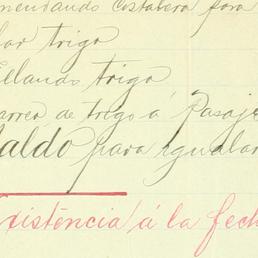 mentando Costabero para
lar trigo
llando trigo
arreo de trigo á Pasaje
aldo para igualar
xistencia á la fech